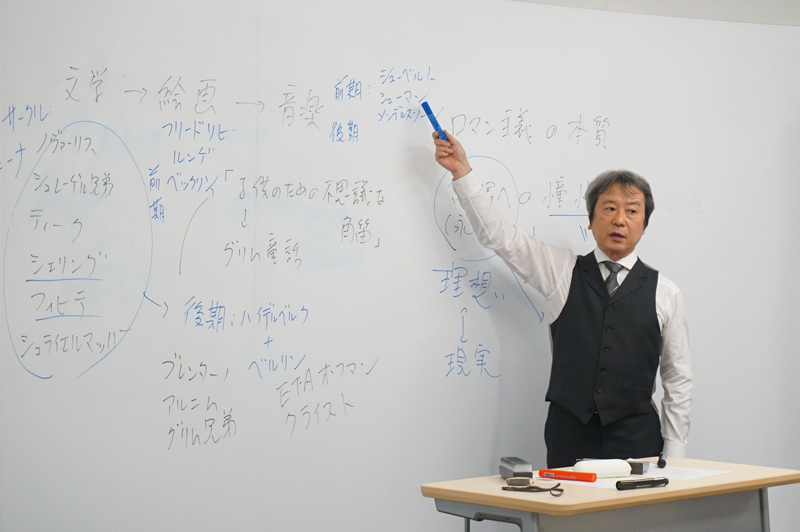 文学 → 絵画 → 音楽
前期: シューベルト
シューマン
後期
サークル:
ノヴァーリス
シュレーゲル兄弟
ティーク
シェリング
フィヒテ
シュライエルマッハー
フリードリヒ
ルンゲ
ベックリン
前期
「子供のための不思議な
角笛」
↓
グリム童話
→ 後期: ハイデルベルク
+
ベルリン
ブレンターノ
アルニム
グリム兄弟
ETAホフマン
クライスト
ロマン主義の本質
への
理想
↕
現実